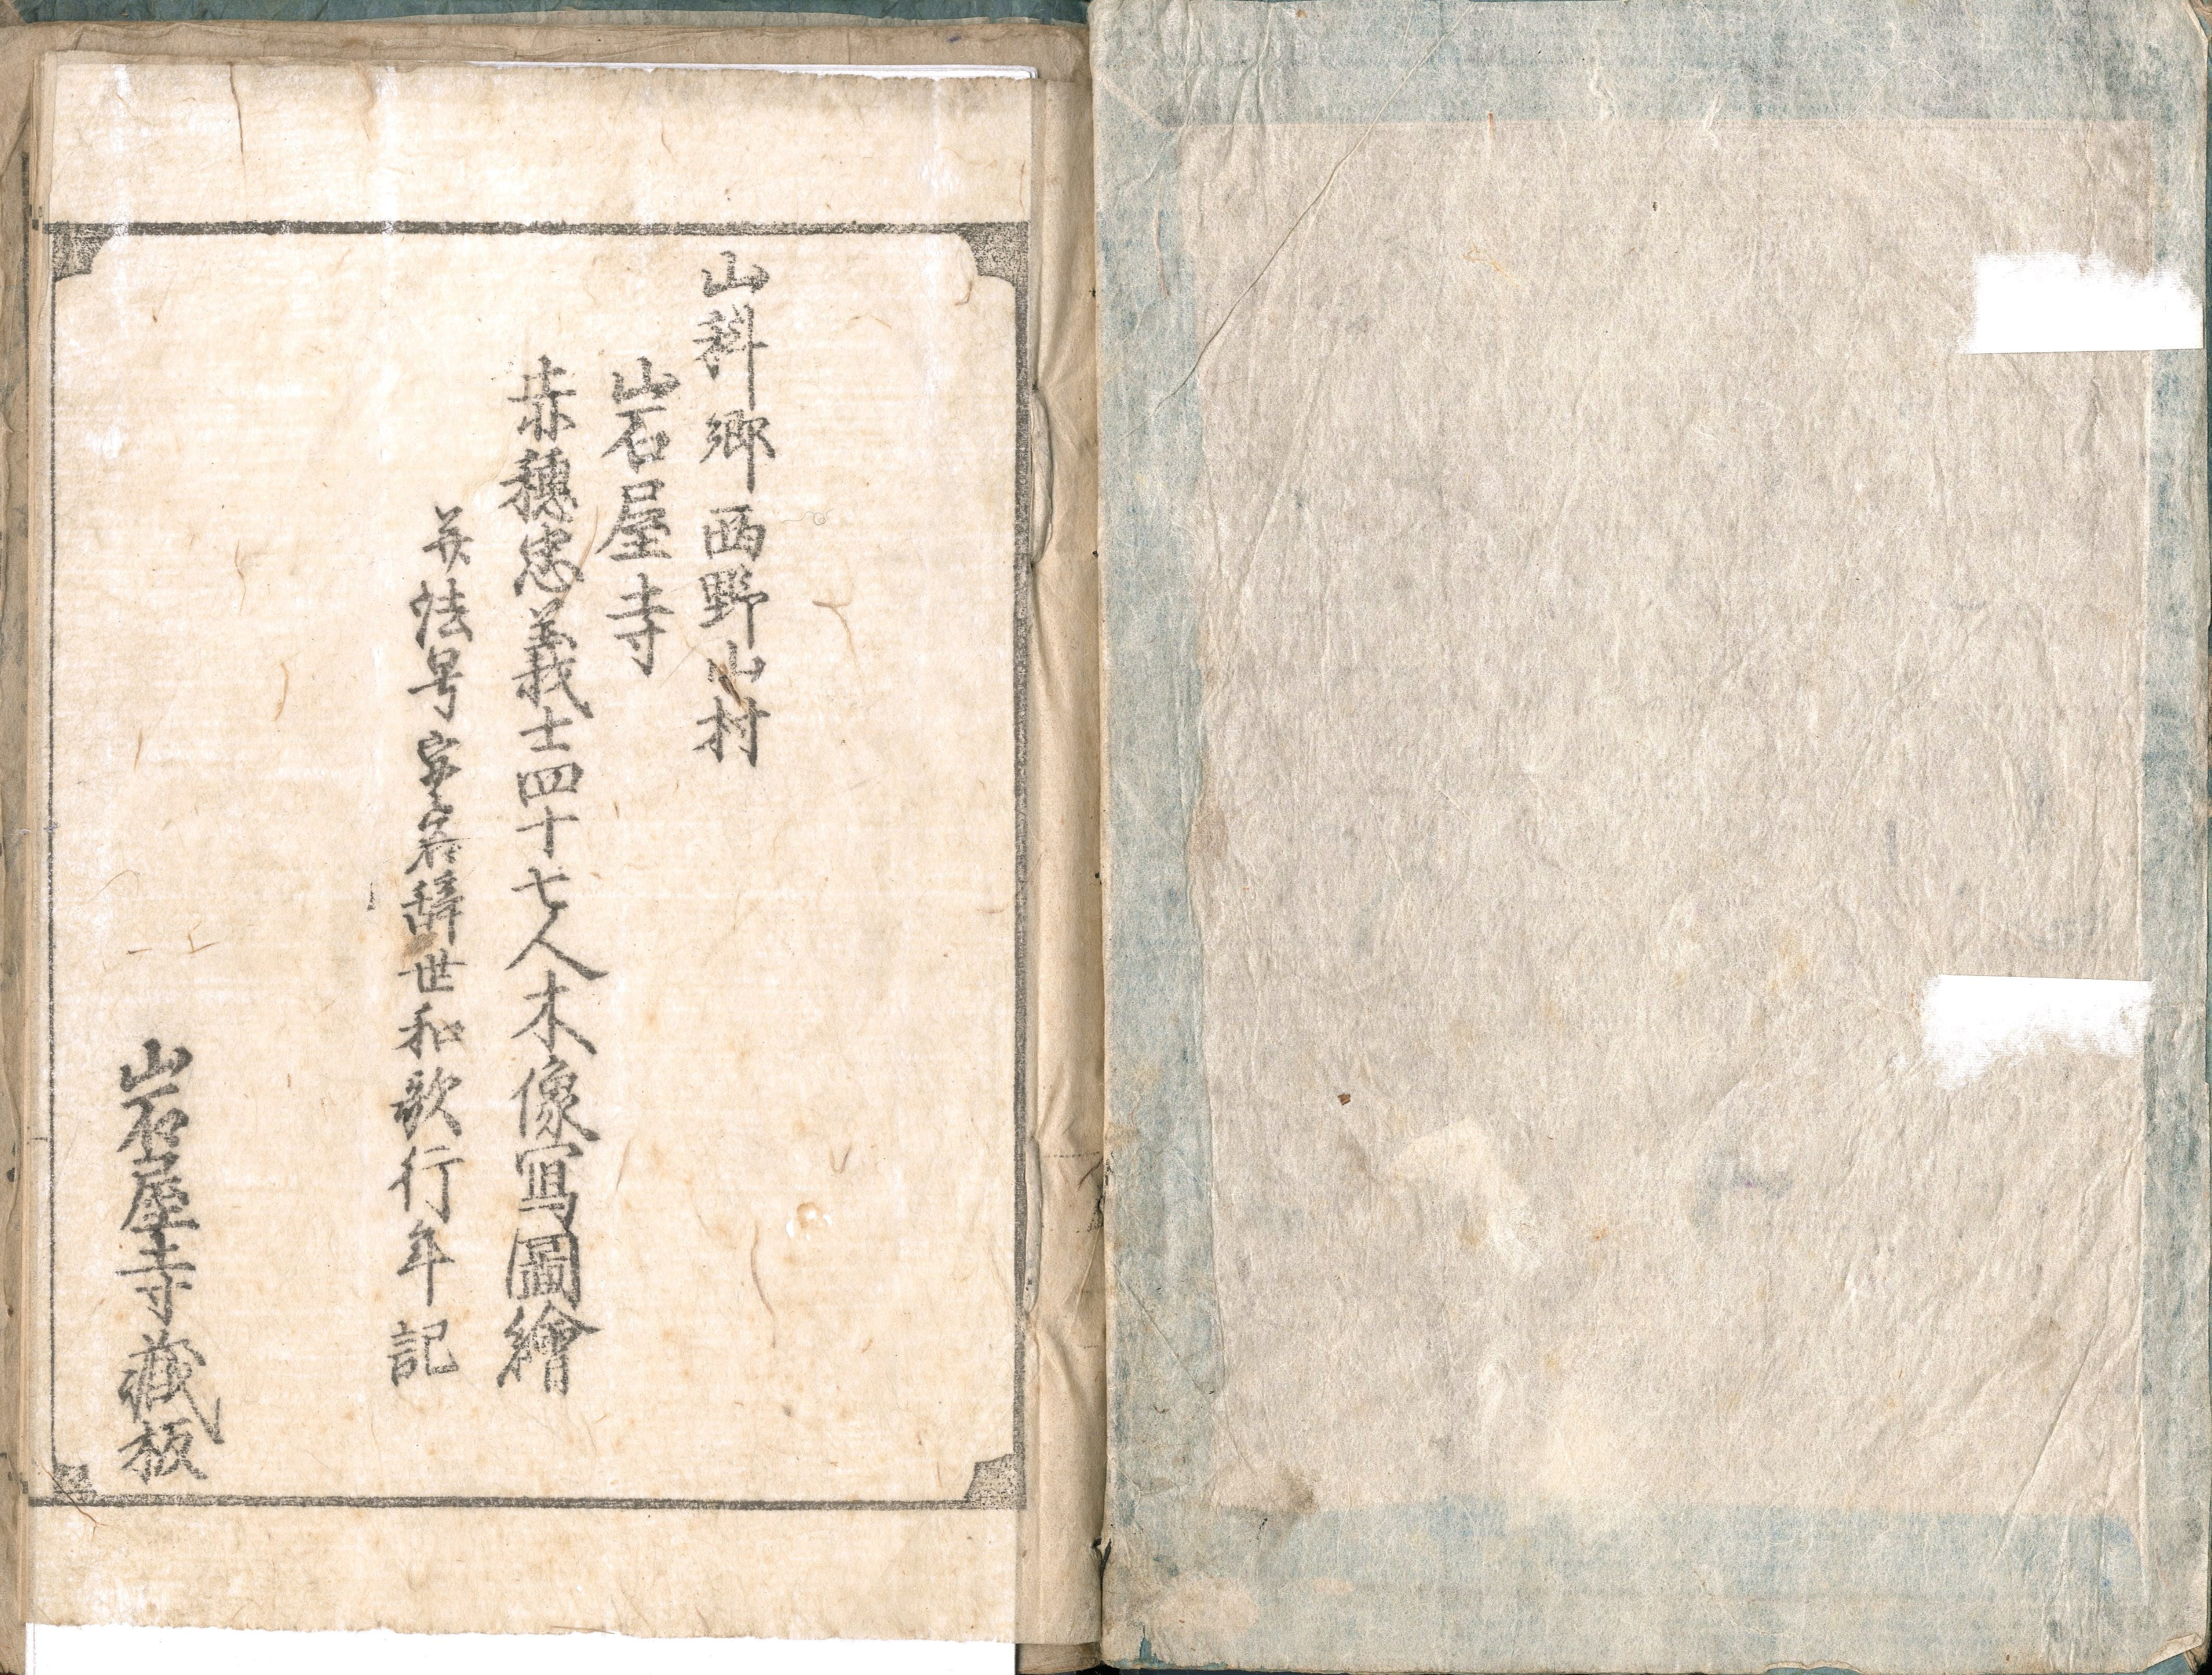 山科郷西野山村
岩屋寺
赤穂忠義士四十七人木像寫圖繪
并法号実名辞世和歌行年記
岩屋寺藏板